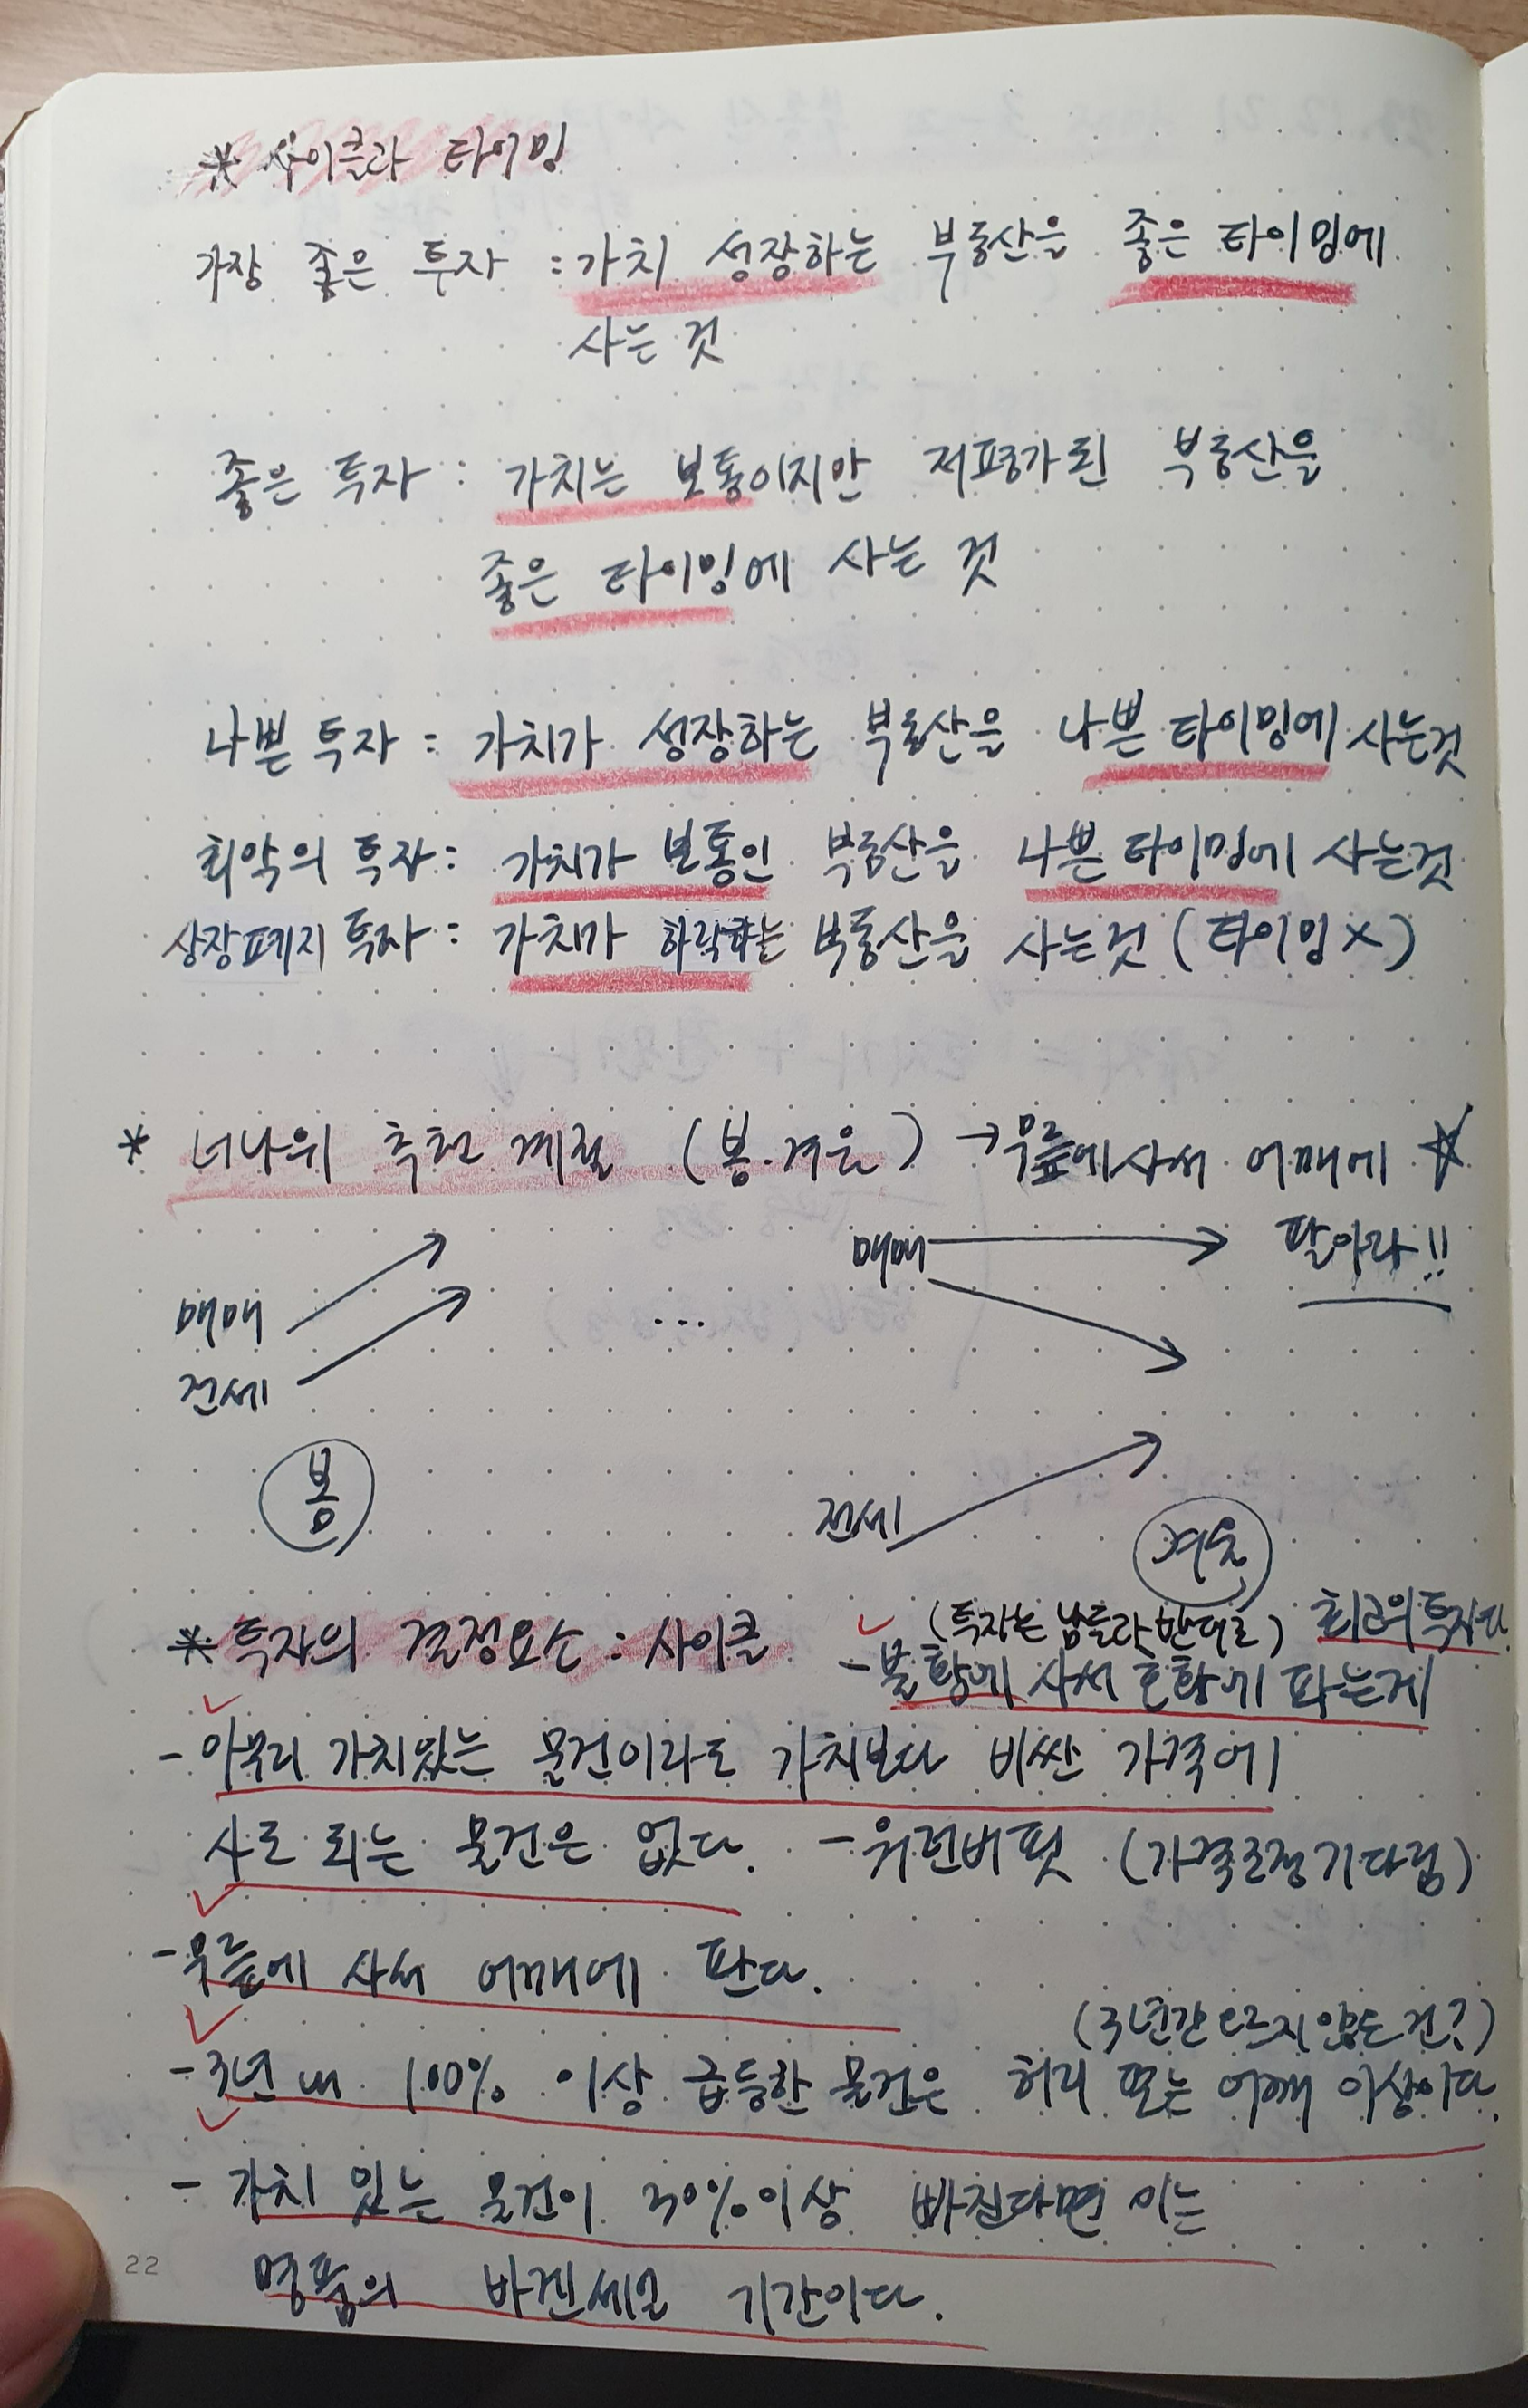 * 사이클과 타이밍
가장 좋은 투자 : 가치 성장하는 부동산을 좋은 타이밍에
사는 것
좋은 투자 : 가치는 보통이지만 저평가된 부동산을
좋은 타이밍에 사는 것
나쁜 투자 : 가치가 성장하는 부동산을 나쁜 타이밍에 사는것
최악의 투자 : 가치가 보통인 부동산을 나쁜 타이밍에 사는것
상장폐지 투자 : 가치가 하락하는 부동산을 사는것 (타이밍 X)
* 너나위 추천 계절 (봄.겨울) → 무릎에 사서 어깨에 ☆
팔아라!!
매매
전세
...
매매
전세
봄
겨울
* 투자의 결정요소 : 사이클
(투자는 남들과 반대로) 최고의 투자다
- 불황에 사서 호황에 파는게
- 아무리 가치있는 물건이라도 가치보다 비싼 가격에
사도 되는 물건은 없다. - 워런버핏 (가격조정기다림)
- 무릎에 사서 어깨에 판다.
(3년간 오르지 않은 건?)
- 3년 내 100% 이상 급등한 물건은 허리 또는 어깨 이상이다.
- 가치 있는 물건이 30%이상 빠진다면 이는
명품의 바겐세일 기간이다.
22